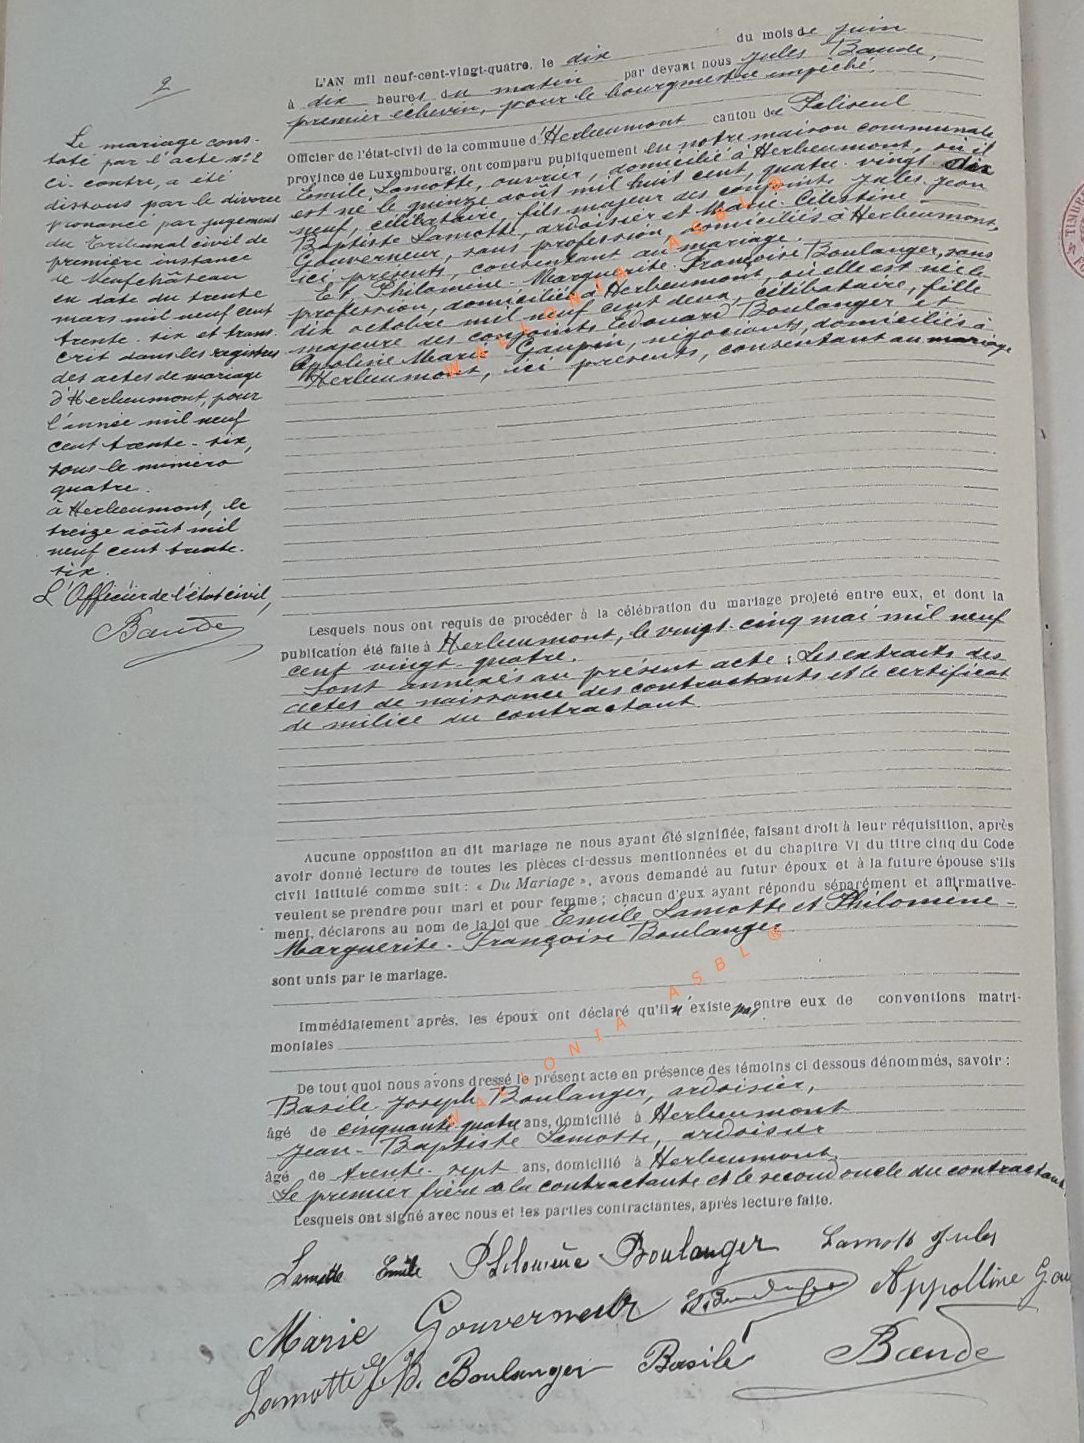 2
Le mariage cons-
taté par l'acte n° 2
ci-contre, a été
dissous par le divorce
prononcé par jugement
du Tribunal civil de
première instance
de Neufchâteau
en date du trente
mars mil neuf cent
trente-six et trans-
crit dans les registres
des actes de mariage
d'Herbeumont, pour
l'année mil neuf
cent trente-six,
sous le numéro
quatre.
à Herbeumont, le
treize août mil
neuf cent trente-
six.
L'Officier de l'état civil,
Baude
L'AN mil neuf-cent-vingt-quatre, le dix du mois de juin
à dix heures du matin par devant nous Jules Baude,
premier échevin, pour le bourgmestre empêché,
Officier de l'état-civil de la commune d'Herbeumont canton de Paliseul
province de Luxembourg, ont comparu publiquement en notre maison communale
Emile Lamotte, ouvrier, domicilié à Herbeumont, où il
est né le quinze août mil huit cent quatre-vingt dix
neuf, célibataire, fils majeur des conjoints Jules-Jean
Baptiste Lamotte, ardoisier et Marie-Célestine
Gouverneur, sans profession, domiciliés à Herbeumont,
ici présents, consentant au mariage.
Et Philomène-Marguerite-Françoise Boulanger, sans
profession, domiciliée à Herbeumont, où elle est née le
dix octobre mil neuf cent deux, célibataire, fille
majeure des conjoints Edouard Boulanger et
Apoline Marie Goupin, négociants, domiciliés à
Herbeumont, ici présents, consentant au mariage
Lesquels nous ont requis de procéder à la célébration du mariage projeté entre eux, et dont la
publication été faite à Herbeumont, le vingt-cinq mai mil neuf
cent vingt-quatre.
Sont annexés au présent acte : Les extraits des
actes de naissance des contractants et le certificat
de milice du contractant.
Aucune opposition au dit mariage ne nous ayant été signifiée, faisant droit à leur réquisition, après
avoir donné lecture de toutes les pièces ci-dessus mentionnées et du chapitre VI du titre cinq du Code
civil intitulé comme suit : « Du Mariage », avons demandé au futur époux et à la future épouse s'ils
veulent se prendre pour mari et pour femme ; chacun d'eux ayant répondu séparément et affirmative-
ment, déclarons au nom de la loi que Emile Lamotte et Philomène-
Marguerite-Françoise Boulanger
sont unis par le mariage.
Immédiatement après, les époux ont déclaré qu'il n'existe pas entre eux de conventions matri-
moniales
De tout quoi nous avons dressé le présent acte en présence des témoins ci dessous dénommés, savoir :
Basile Joseph Boulanger, ardoisier,
âgé de cinquante quatre ans, domicilié à Herbeumont
Jean-Baptiste Lamotte, ardoisier
âgé de trente-sept ans, domicilié à Herbeumont.
Le premier frère de la contractante et le second oncle du contractant.
Lesquels ont signé avec nous et les parties contractantes, après lecture faite.
Lamotte Emile Philomène Boulanger Lamott Jules
Marie Gouverneur Appolline Gou
Lamotte J.B. Boulanger Basile Baude
WALLONIA ASBL ®
WALLONIA ASBL ®